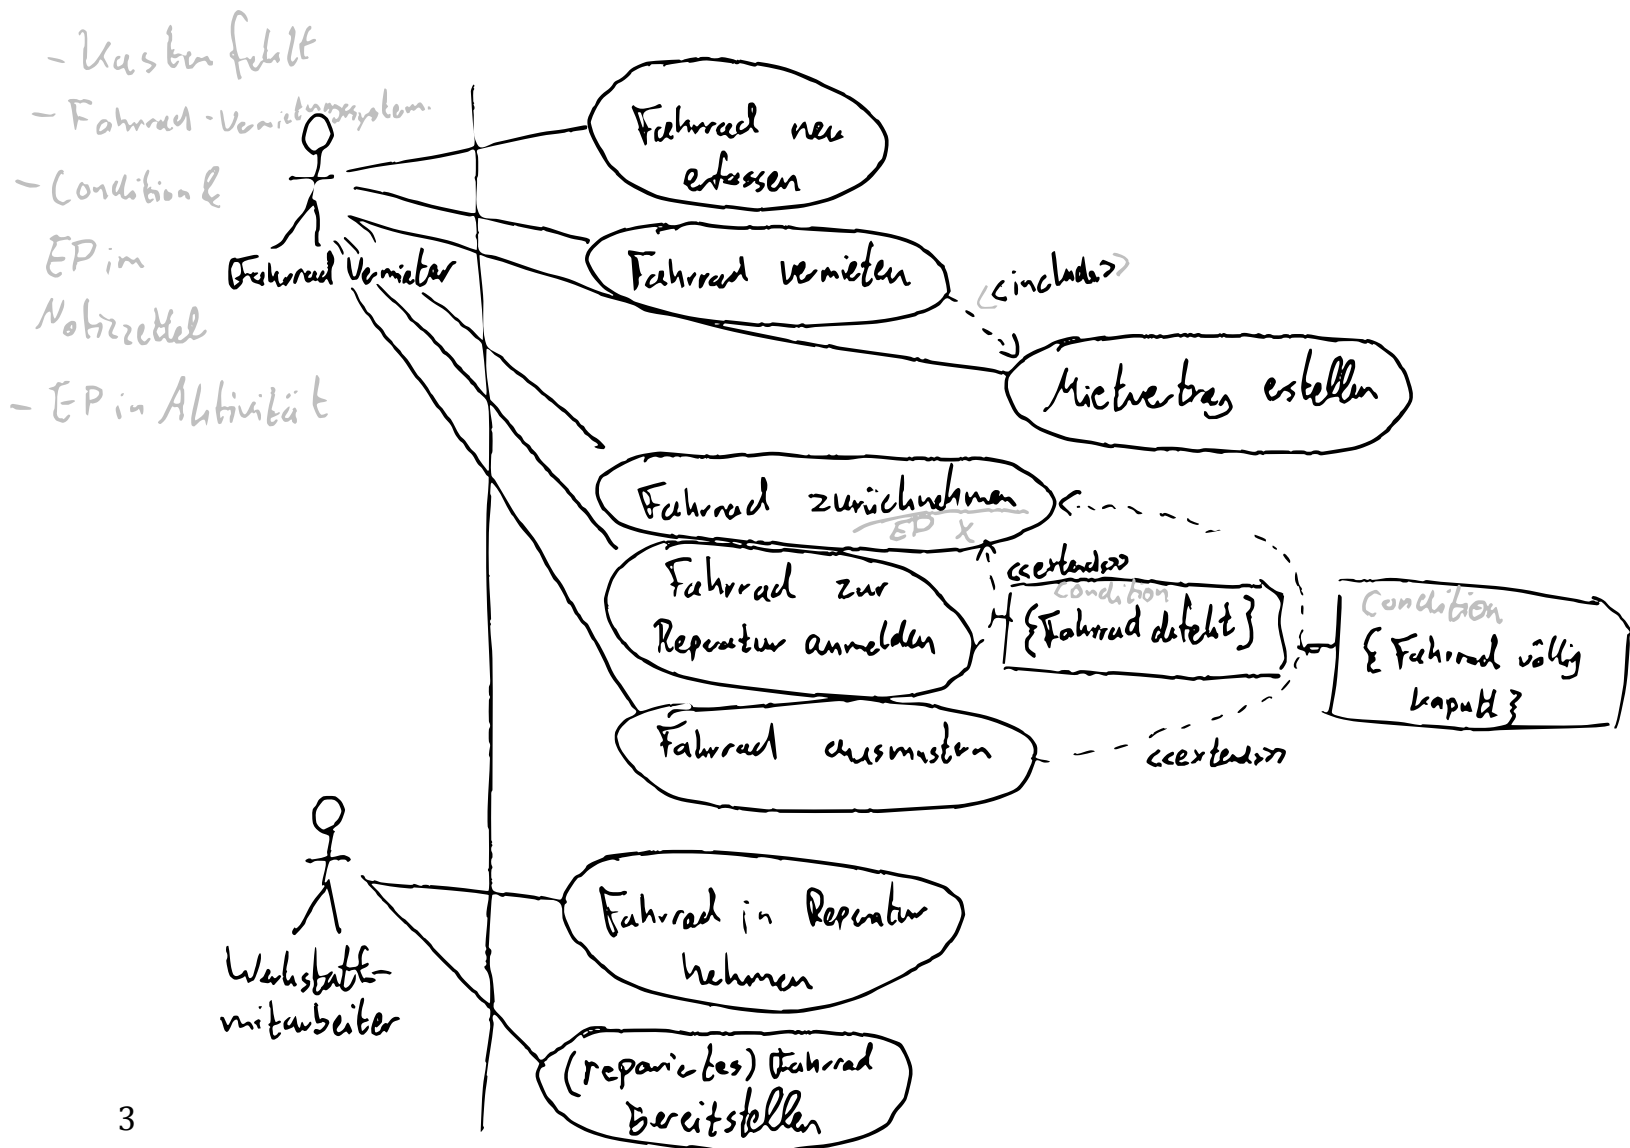 - Kasten fehlt
- Fahrrad-Vermietungssystem
- Condition &
EP im
Notizzettel
- EP in Aktivität
Fahrrad Vermieter
Fahrrad neu
erfassen
Fahrrad vermieten
<<include>>
Mietvertrag erstellen
Fahrrad zurücknehmen
EP X
Fahrrad zur
Reperatur anmelden
<<extends>>
Condition
{Fahrrad defekt}
Condition
{Fahrrad völlig
kaputt}
Fahrrad ausmustern
<<extends>>
Werkstatt-
mitarbeiter
Fahrrad in Reperatur
nehmen
(repariertes) Fahrrad
Bereitstellen
3